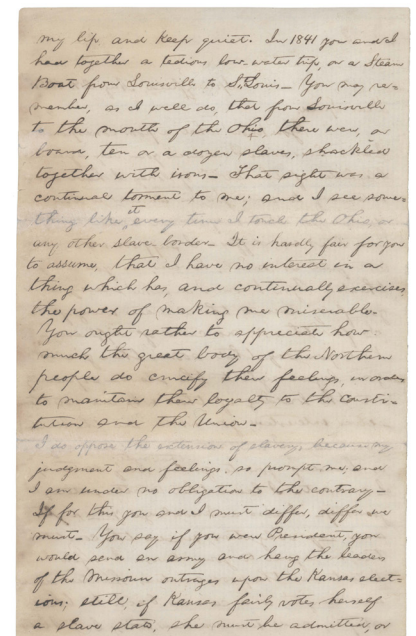 my lip and keep quiet. In 1841 you and I
had together a tedious low-water trip, on a Steam
Boat from Louisville to St. Louis - You may re-
member, as I well do, that from Louisville
to the mouth of the Ohio, there were, on
board, ten or a dozen slaves, shackled
together with irons - That sight was a
continual torment to me; and I see some-
thing like it every time I touch the Ohio, or
any other slave border - It is hardly fair for you
to assume, that I have no interest in a
thing which has, and continually exercises,
the power of making me miserable.
You ought rather to appreciate how
much the great body of the Northern
people do crucify their feelings, in order
to maintain their loyalty to the Consti-
tution and the Union -
I do oppose the extension of slavery, because my
judgment and feelings so prompt me; and
I am under no obligation to the contrary -
If for this you and I must differ, differ we
must - You say if you were President, you
would send an army and hang the leaders
of the Missouri outrages upon the Kansas elect-
ions; still, if Kansas fairly votes herself
a slave state, she must be admitted, or